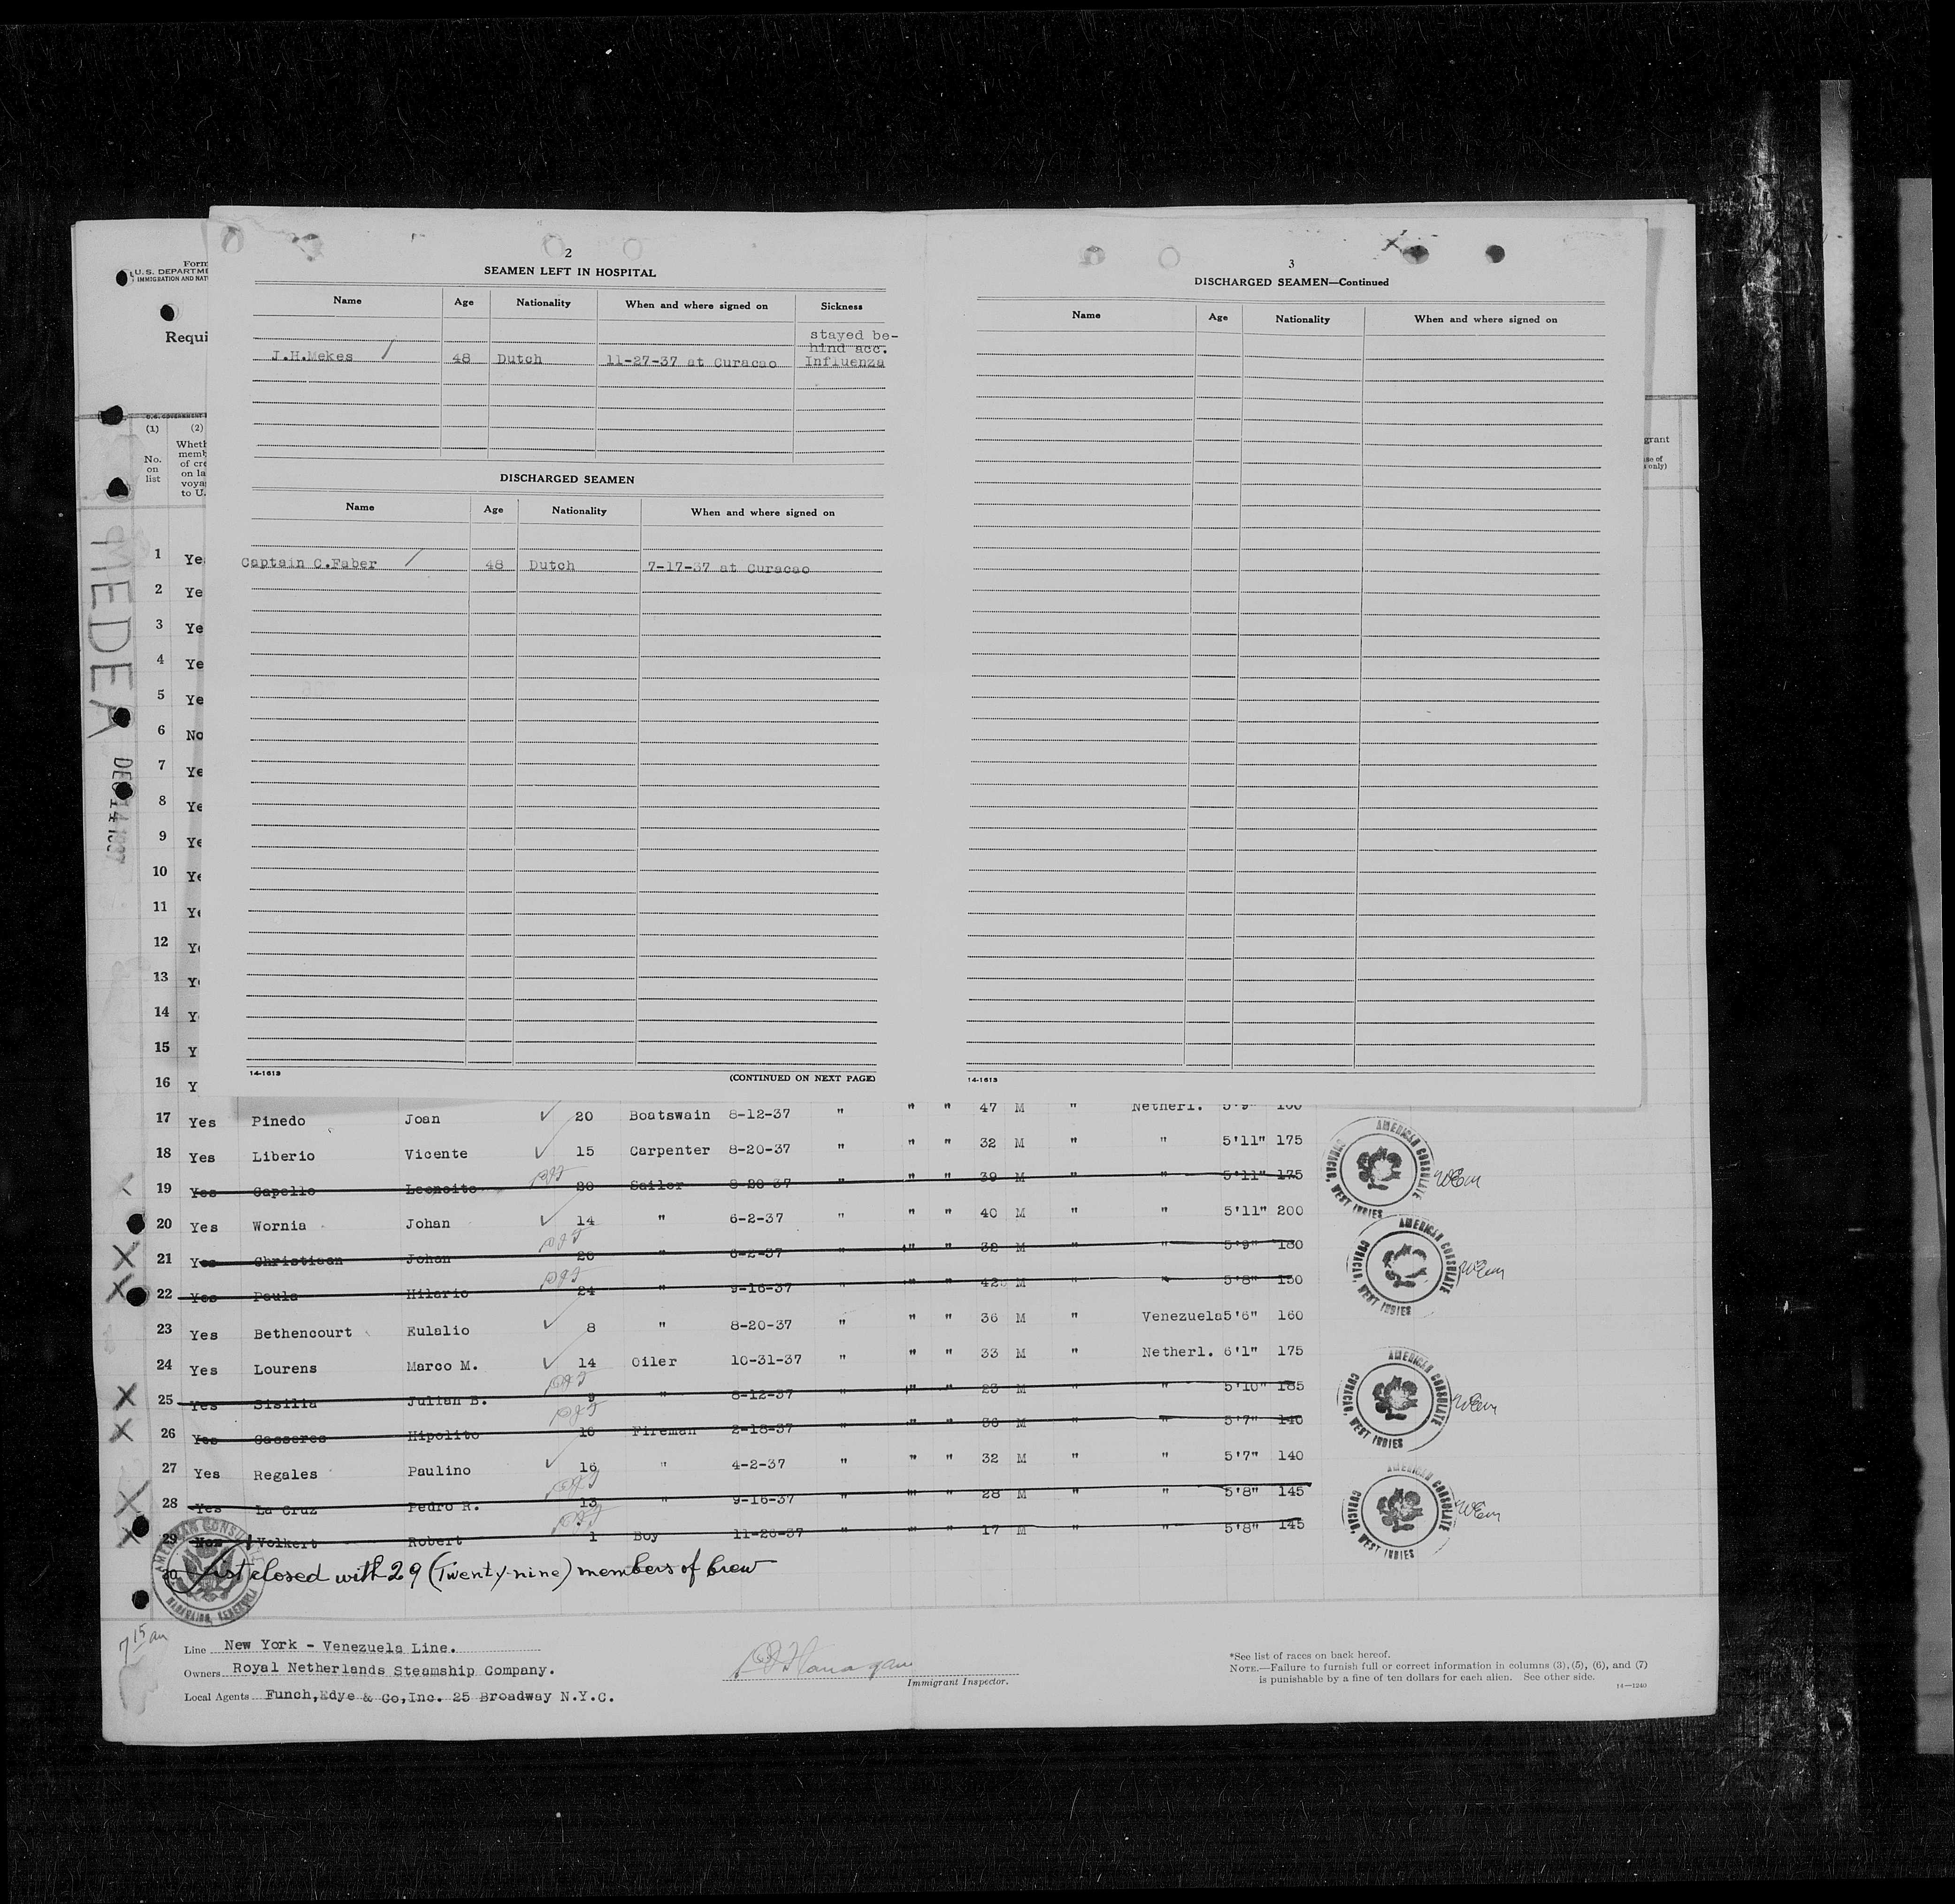 2
SEAMEN LEFT IN HOSPITAL
Name Age Nationality When and where signed on Sickness
stayed be-
hind acc.
J.H.Mekes / 48 Dutch 11-27-37 at Curacao Influenza
DISCHARGED SEAMEN
Name Age Nationality When and where signed on
Captain C.Faber / 48 Dutch 7-17-37 at Curacao
14-1613
(CONTINUED ON NEXT PAGE)
3
DISCHARGED SEAMEN—Continued
Name Age Nationality When and where signed on
14-1613
Form
U.S. DEPARTME
IMMIGRATION AND NAT
Requi
(1) (2)
No. on list
Wheth
memb
of cre
on la
voya
to U.
grant
se of
only)
MEDEA
DEC 14 1937
1 Ye
2 Ye
3 Ye
4 Ye
5 Ye
6 No
7 Ye
8 Ye
9 Ye
10 Ye
11 Ye
12 Y
13 Y
14 Y
15 Y
16 Y
17 Yes Pinedo Joan 20 Boatswain 8-12-37 " " " 47 M " Netherl. 5'9" 160
18 Yes Liberio Vicente 15 Carpenter 8-20-37 " " " 32 M " " 5'11" 175
19 Yes Capello Leoncito 20 Sailor 8-20-37 " " " 39 M " " 5'11" 175
20 Yes Wornia Johan 14 " 6-2-37 " " " 40 M " " 5'11" 200
21 Yes Christiaan Johan 20 " 6-2-37 " " " 32 M " " 5'9" 180
22 Yes Paula Hilario 24 " 9-16-37 " " " 42 M " " 5'8" 150
23 Yes Bethencourt Eulalio 8 " 8-20-37 " " " 36 M " Venezuela 5'6" 160
24 Yes Lourens Marco M. 14 Oiler 10-31-37 " " " 33 M " Netherl. 6'1" 175
25 Yes Sisilia Julian B. 9 " 8-12-37 " " " 23 M " " 5'10" 185
26 Yes Casseres Hipolito 16 Fireman 2-18-37 " " " 36 M " " 5'7" 140
27 Yes Regales Paulino 16 " 4-2-37 " " " 32 M " " 5'7" 140
28 Yes La Cruz Pedro R. 13 " 9-16-37 " " " 28 M " " 5'8" 145
29 Volkert Robert 1 Boy 11-26-37 " " " 17 M " " 5'8" 145
30 List closed with 29 (Twenty-nine) members of crew
AMERICAN CONSULATE
CURACAO, WEST INDIES
AMERICAN CONSULATE
CURACAO, WEST INDIES
AMERICAN CONSULATE
CURACAO, WEST INDIES
AMERICAN CONSULATE
CURACAO, WEST INDIES
7 15 am
Line New York - Venezuela Line.
Owners Royal Netherlands Steamship Company.
Local Agents Funch,Edye & Co,Inc. 25 Broadway N.Y.C.
Immigrant Inspector.
*See list of races on back hereof.
NOTE.—Failure to furnish full or correct information in columns (3), (5), (6), and (7)
is punishable by a fine of ten dollars for each alien. See other side.
14—1240